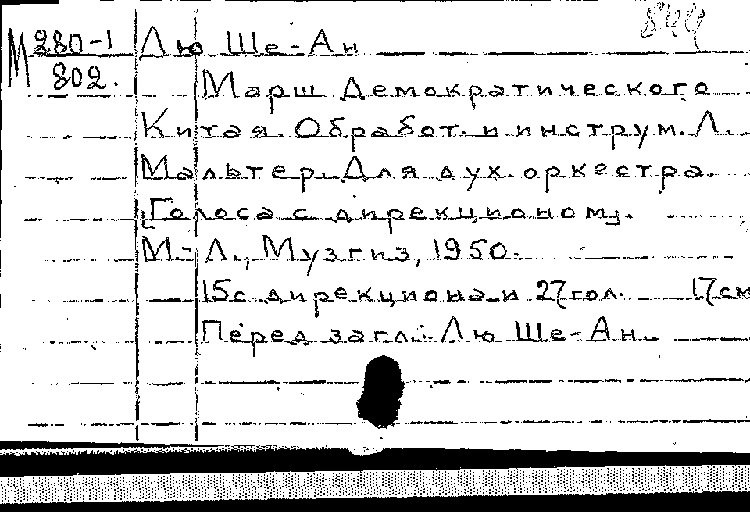 844
М 280-1 Лю Ше-Ан
802.
Марш Демократического
Китая. Обработ. и инструм. Л.
Мальтер. Для дух. оркестра.
[Голоса с дирекционом].
М-Л., Музгиз, 1950.
15с. дирекциона и 27 гол. 17см
Перед загл.: Лю Ше-Ан.